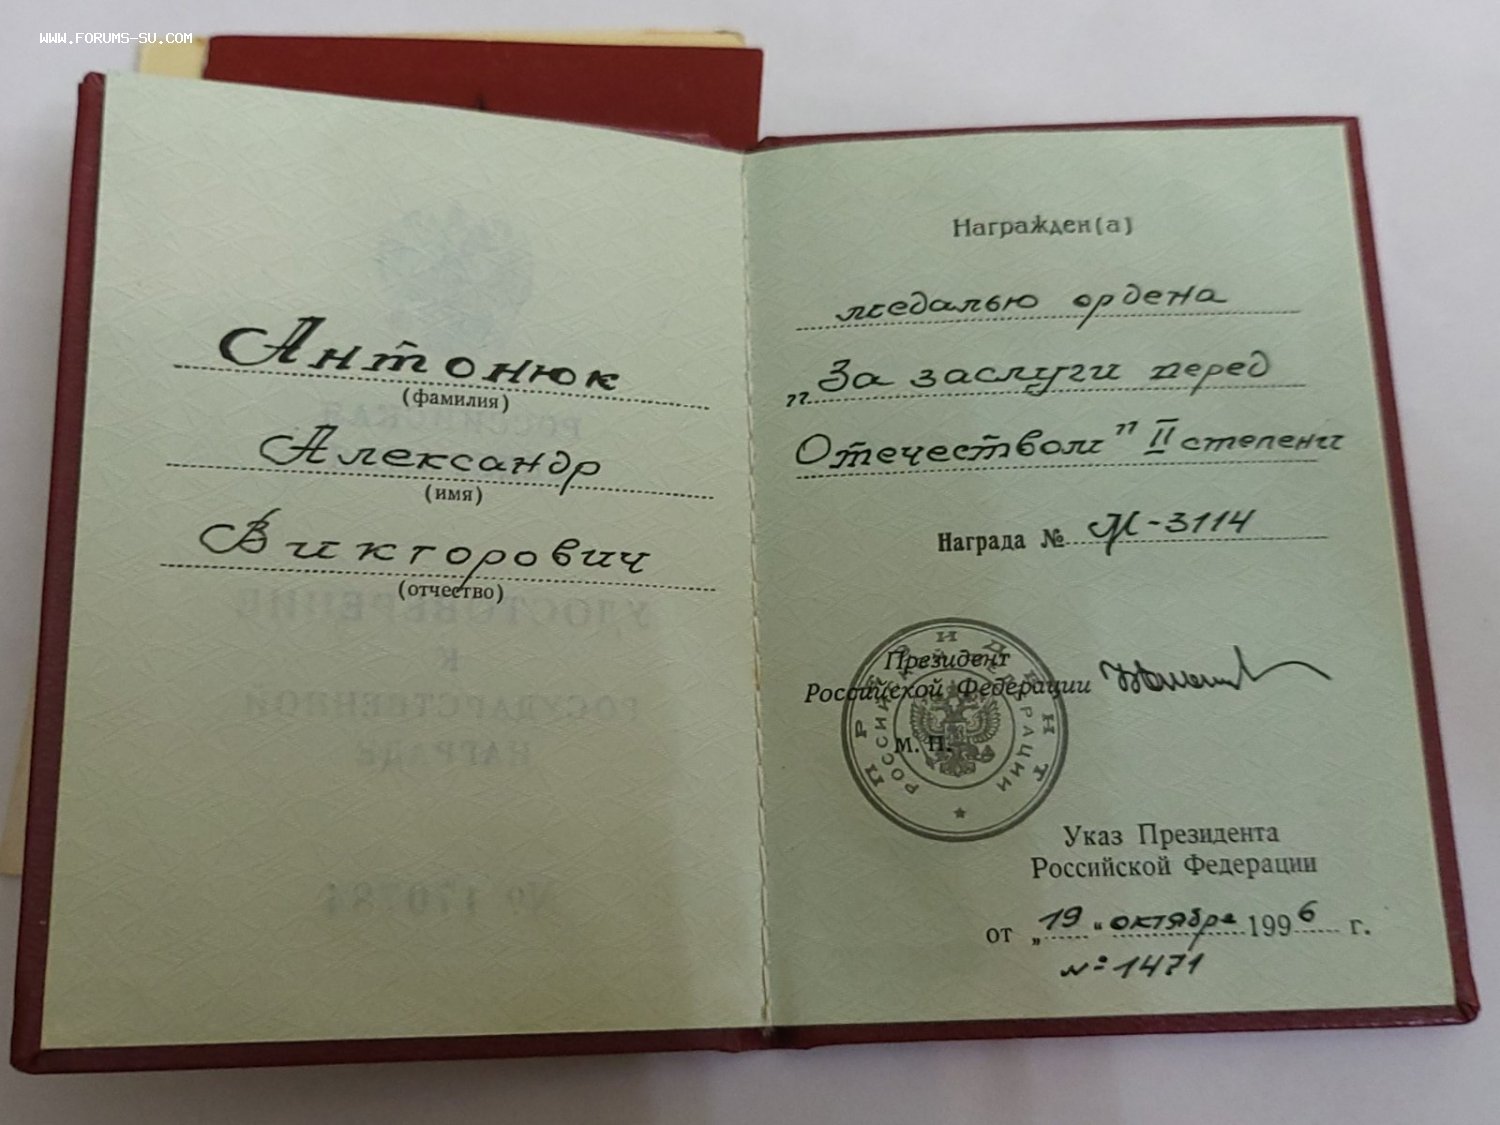 WWW.FORUMS-SU.COM
Антонюк
(фамилия)
Александр
(имя)
Викторович
(отчество)
Награжден(а)
медалью ордена
„За заслуги перед
Отечеством" II степени
Награда № М-3114
Президент
Российской Федерации
М. П.
ПРЕЗИДЕНТ
РОССИЙСКОЙ ФЕДЕРАЦИИ
Указ Президента
Российской Федерации
от „19" октября 1996 г.
№ 1471
РОССИЙСКАЯ
УДОСТОВЕРЕНИЕ
К
ГОСУДАРСТВЕННОЙ
НАГРАДЕ